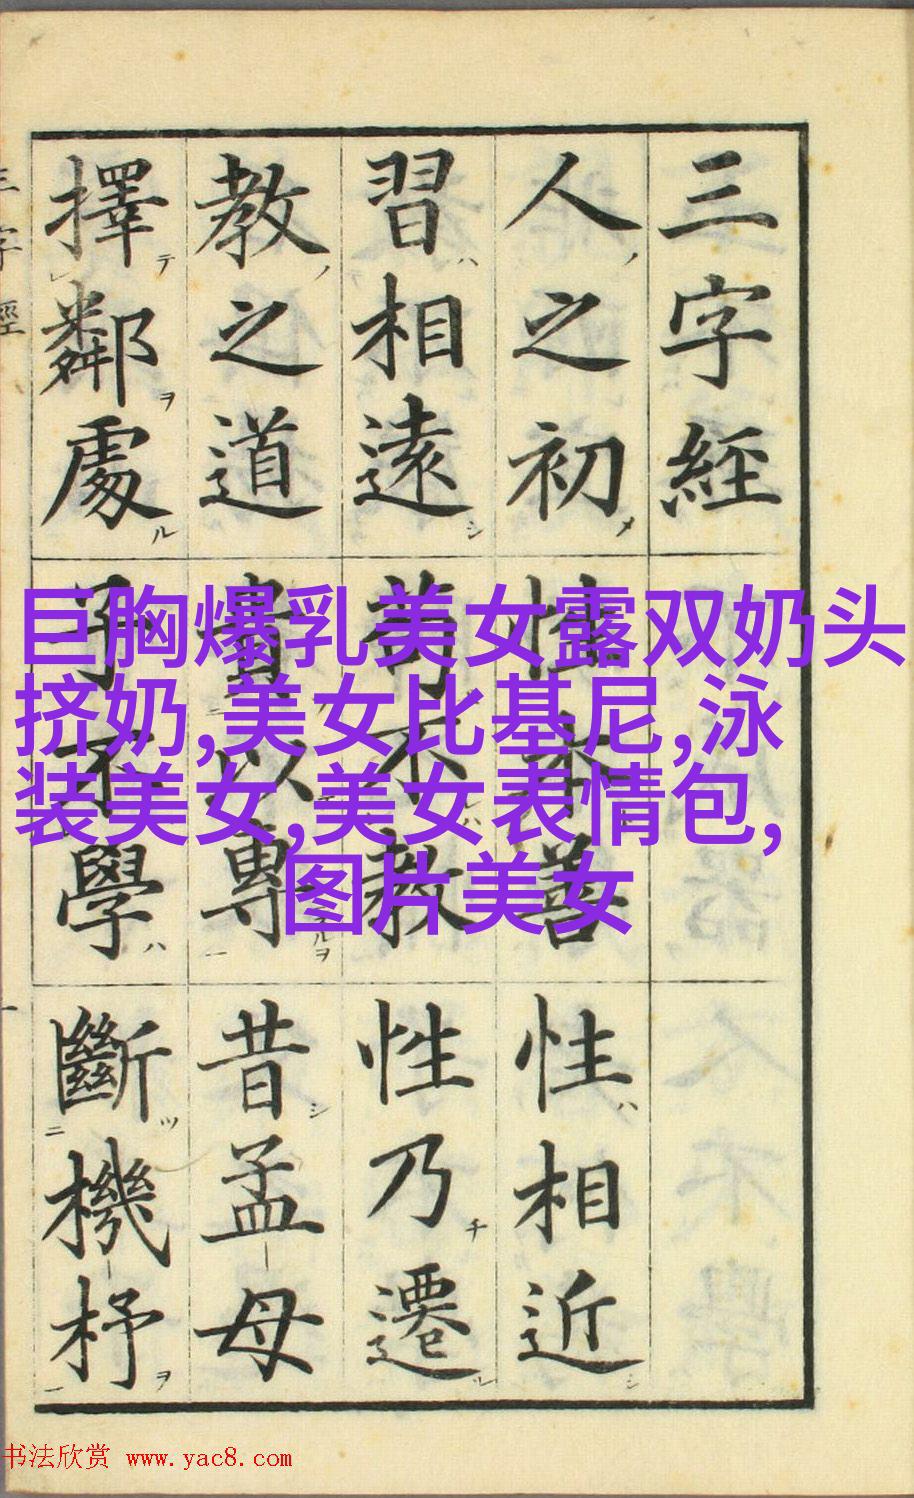 三字經
人之初 性本善 性相近
習相遠 苟不教 性乃遷
教之道 貴以專 昔孟母
擇鄰處 子不學 斷機杼
三字經 一
巨胸爆乳美女露双奶头
挤奶,美女比基尼,泳
装美女,美女表情包,
图片美女
书法欣赏 www.yac8.com